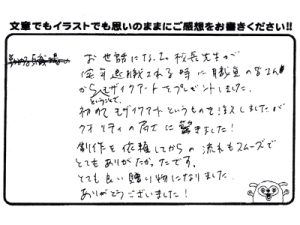 文章でもイラストでも思いのままにご感想をお書きください!!
お世話になった校長先生が
定年退職される時に職員の皆さん
からモザイクアートをプレゼントしました。
ということで、
初めてモザイクアートというものを注文しましたが
クオリティの高さに驚きました!
創作を依頼してからの流れもスムーズで
とてもありがたかったです。
とても良い贈り物になりました。
ありがとうございました!